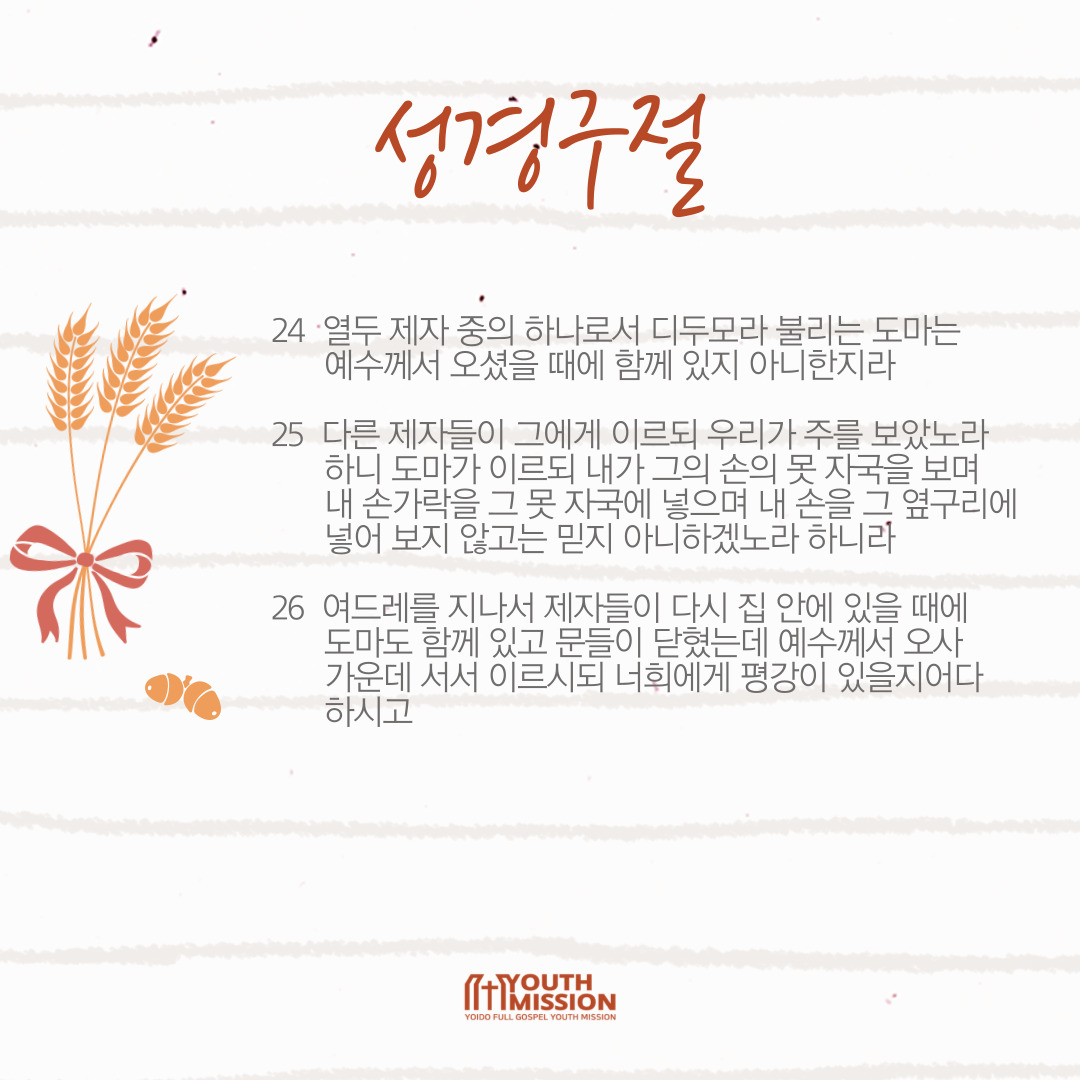 성경구절
24 열두 제자 중의 하나로서 디두모라 불리는 도마는
예수께서 오셨을 때에 함께 있지 아니한지라
25 다른 제자들이 그에게 이르되 우리가 주를 보았노라
하니 도마가 이르되 내가 그의 손의 못 자국을 보며
내 손가락을 그 못 자국에 넣으며 내 손을 그 옆구리에
넣어 보지 않고는 믿지 아니하겠노라 하니라
26 여드레를 지나서 제자들이 다시 집 안에 있을 때에
도마도 함께 있고 문들이 닫혔는데 예수께서 오사
가운데 서서 이르시되 너희에게 평강이 있을지어다
하시고
YOUTH
MISSION
YOIDO FULL GOSPEL YOUTH MISSION